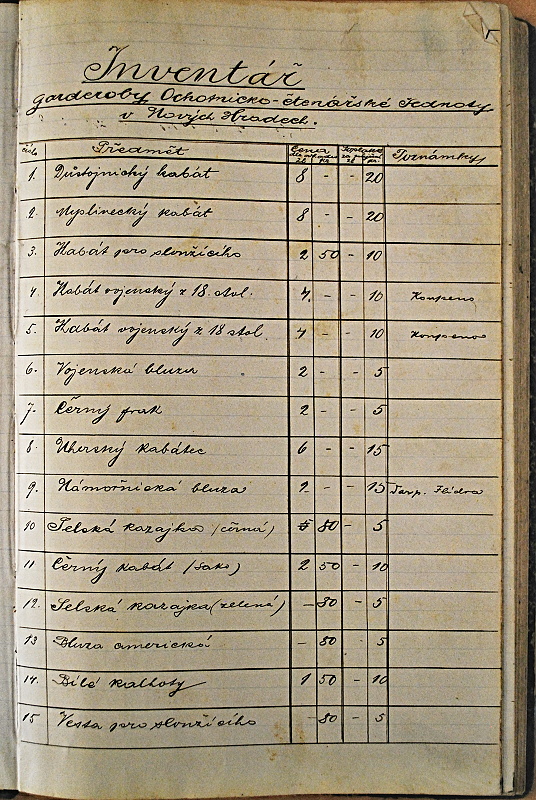 Inventář
garderoby Ochotnicko-čtenářské Jednoty
v Nových Hradech.
číslo Předmět Cena zl kr Poplatek za půjčení kr Poznámky
1. Důstojnický kabát 8 - - 20
2. Myslivecký kabát 8 - - 20
3. Kabát pro sloužícího 2 50 - 10
4. Kabát vojenský z 18. stol. 4. - - 10 Koupeno
5. Kabát vojenský z 18 stol. 4 - - 10 Koupeno
6. Vojenská bluza 2 - - 5
7. Černý frak 2 - - 5
8. Uherský kabátec 6 - - 15
9. Námořnická bluza 2 - - 15
10 Selská kazajka (černá) 80 - 5
11 Černý kabát (sako) 2 50 - 10
12. Selská kazajka (zelená) - 80 - 5
13 Bluza americká - 80 - 5
14. Bílé kalhoty 1 50 - 10
15 Vesta pro sloužícího - 80 - 5